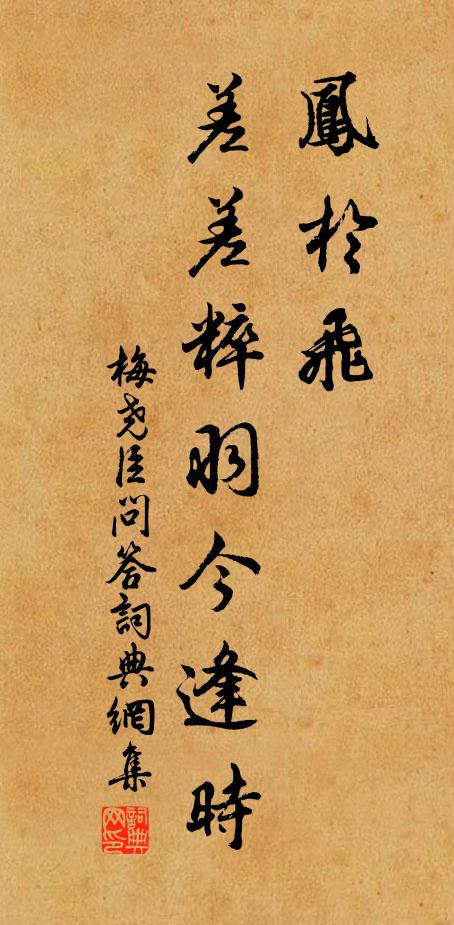 鳳於飛
差差粹羽今逢時
梅尧臣問答詞典網集
詞典网印